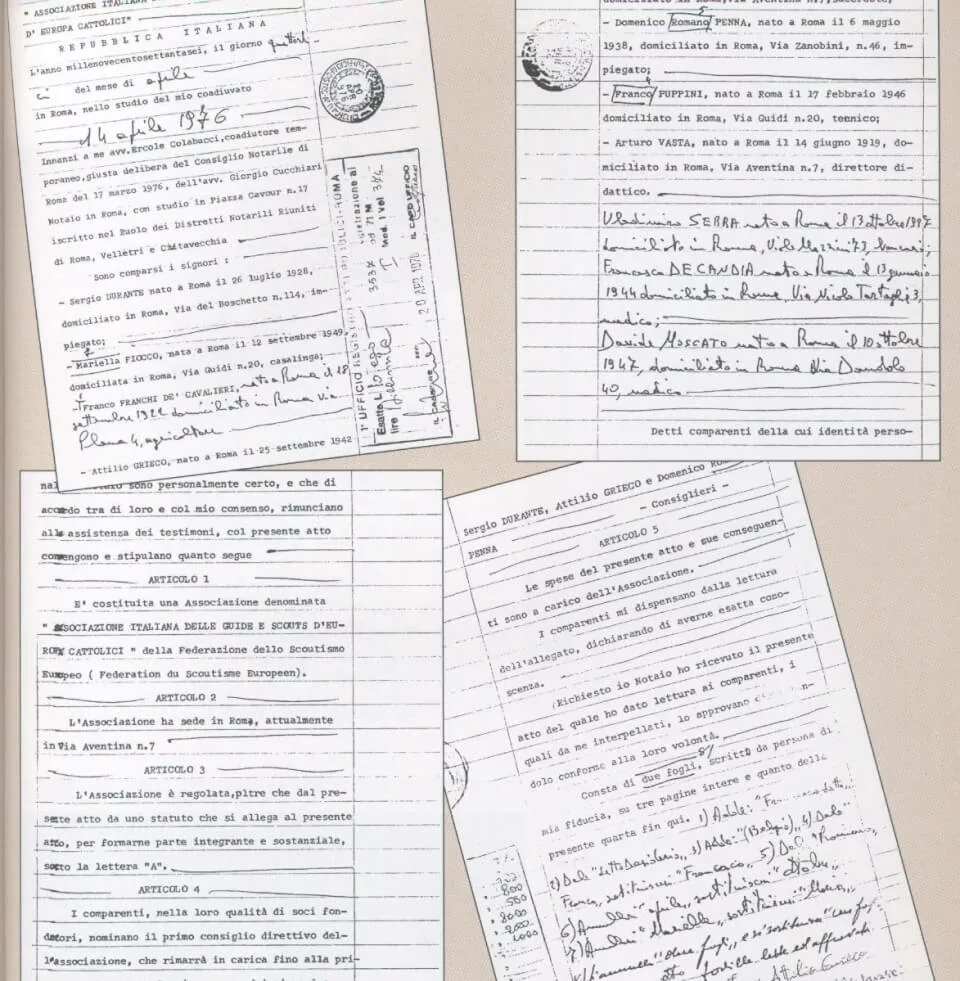 " ASSOCIAZIONE ITALIANA
D' EUROPA CATTOLICI"
REPUBBLICA ITALIANA
L'anno millenovecentosettantasei, il giorno quattordi
ci del mese di aprile
in Roma, nello studio del mio coadiuvato
14 aprile 1976
Innanzi a me avv.Ercole Colabucci,coadiutore tem-
poraneo,giusta delibera del Consiglio Notarile di
Roma del 17 marzo 1976, dell'avv. Giorgio Cucchiari
Notaio in Roma, con studio in Piazza Cavour n.17
iscritto nel Ruolo dei Distretti Notarili Riuniti
di Roma, Velletri e Civitavecchia
Sono comparsi i signori :
- Sergio DURANTE nato a Roma il 26 luglio 1928,
domiciliato in Roma, Via del Boschetto n.114, im-
piegato;
- Mariella FIOCCO, nata a Roma il 12 settembre 1949,
domiciliata in Roma, Via Guidi n.20, casalinga;
- Franco FRANCHI DE' CAVALIERI, nato a Roma il 28
settembre 1922 domiciliato in Roma via
Plana 4, agricoltore
- Attilio GRIECO, nato a Roma il 25 settembre 1942
1° UFFICIO REGISTRO ATTI PUBBLICI-ROMA
Esatte L.
lire
Mod. I Vol
20 APR 1976
IL CASSIERE
IL CAPO UFFICIO
- Domenico Romano PENNA, nato a Roma il 6 maggio
1938, domiciliato in Roma, Via Zanobini, n.46, im-
piegato;
- Franco PUPPINI, nato a Roma il 17 febbraio 1946
domiciliato in Roma, Via Guidi n.20, tecnico;
- Arturo VASTA, nato a Roma il 14 giugno 1919, do-
miciliato in Roma, Via Aventina n.7, direttore di-
dattico.
SERRA nato a Roma il 13 ottobre
domiciliato in Roma, Viale Mazzini 73,
Francesca DE CANDIA nata a Roma il 13 gennaio
1944 domiciliato in Roma, Via Nicolò Tartaglia 3,
medico;
Davide MOSCATO nato a Roma il 10 ottobre
1947, domiciliato in Roma Via Dandolo
40, medico
Detti comparenti della cui identità perso-
sono personalmente certo, e che di
accordo tra di loro e col mio consenso, rinunciano
alla assistenza dei testimoni, col presente atto
convengono e stipulano quanto segue
ARTICOLO 1
E' costituita una Associazione denominata
" ASSOCIAZIONE ITALIANA DELLE GUIDE E SCOUTS D'EU-
ROPA CATTOLICI " della Federazione dello Scoutismo
Europeo ( Federation du Scoutisme Europeen).
ARTICOLO 2
L'Associazione ha sede in Roma, attualmente
in Via Aventina n.7
ARTICOLO 3
L'Associazione è regolata,pltre che dal pre-
sente atto da uno statuto che si allega al presente
atto, per formarne parte integrante e sostanziale,
sotto la lettera "A".
ARTICOLO 4
I comparenti, nella loro qualità di soci fon-
datori, nominano il primo consiglio direttivo del-
l'associazione, che rimarrà in carica fino alla pri-
Sergio DURANTE, Attilio GRIECO e Domenico
PENNA - Consiglieri -
ARTICOLO 5
Le spese del presente atto e sue conseguen-
ti sono a carico dell'Associazione.
I comparenti mi dispensano dalla lettura
dell'allegato, dichiarando di averne esatta cono-
scenza.
Richiesto io Notaio ho ricevuto il presente
atto del quale ho dato lettura ai comparenti, i
quali da me interpellati, lo approvano
dolo conforme alla loro volontà.
Consta di due fogli, scritto da persona di
mia fiducia, su tre pagine intere e quanto della
presente quarta fin qui. 1) Adde: "
2) Dele " 3) Adde: "(Belgio)", 4) Dele "
Franco, sostituisci "Francesco", 5) Dele "Romano"
6) Annulla "aprile", sostituisci "ottobre"
7) Annulla "Mariella", sostituisci "Maria"
800
500
8000
2000
1000
Attilio Grieco